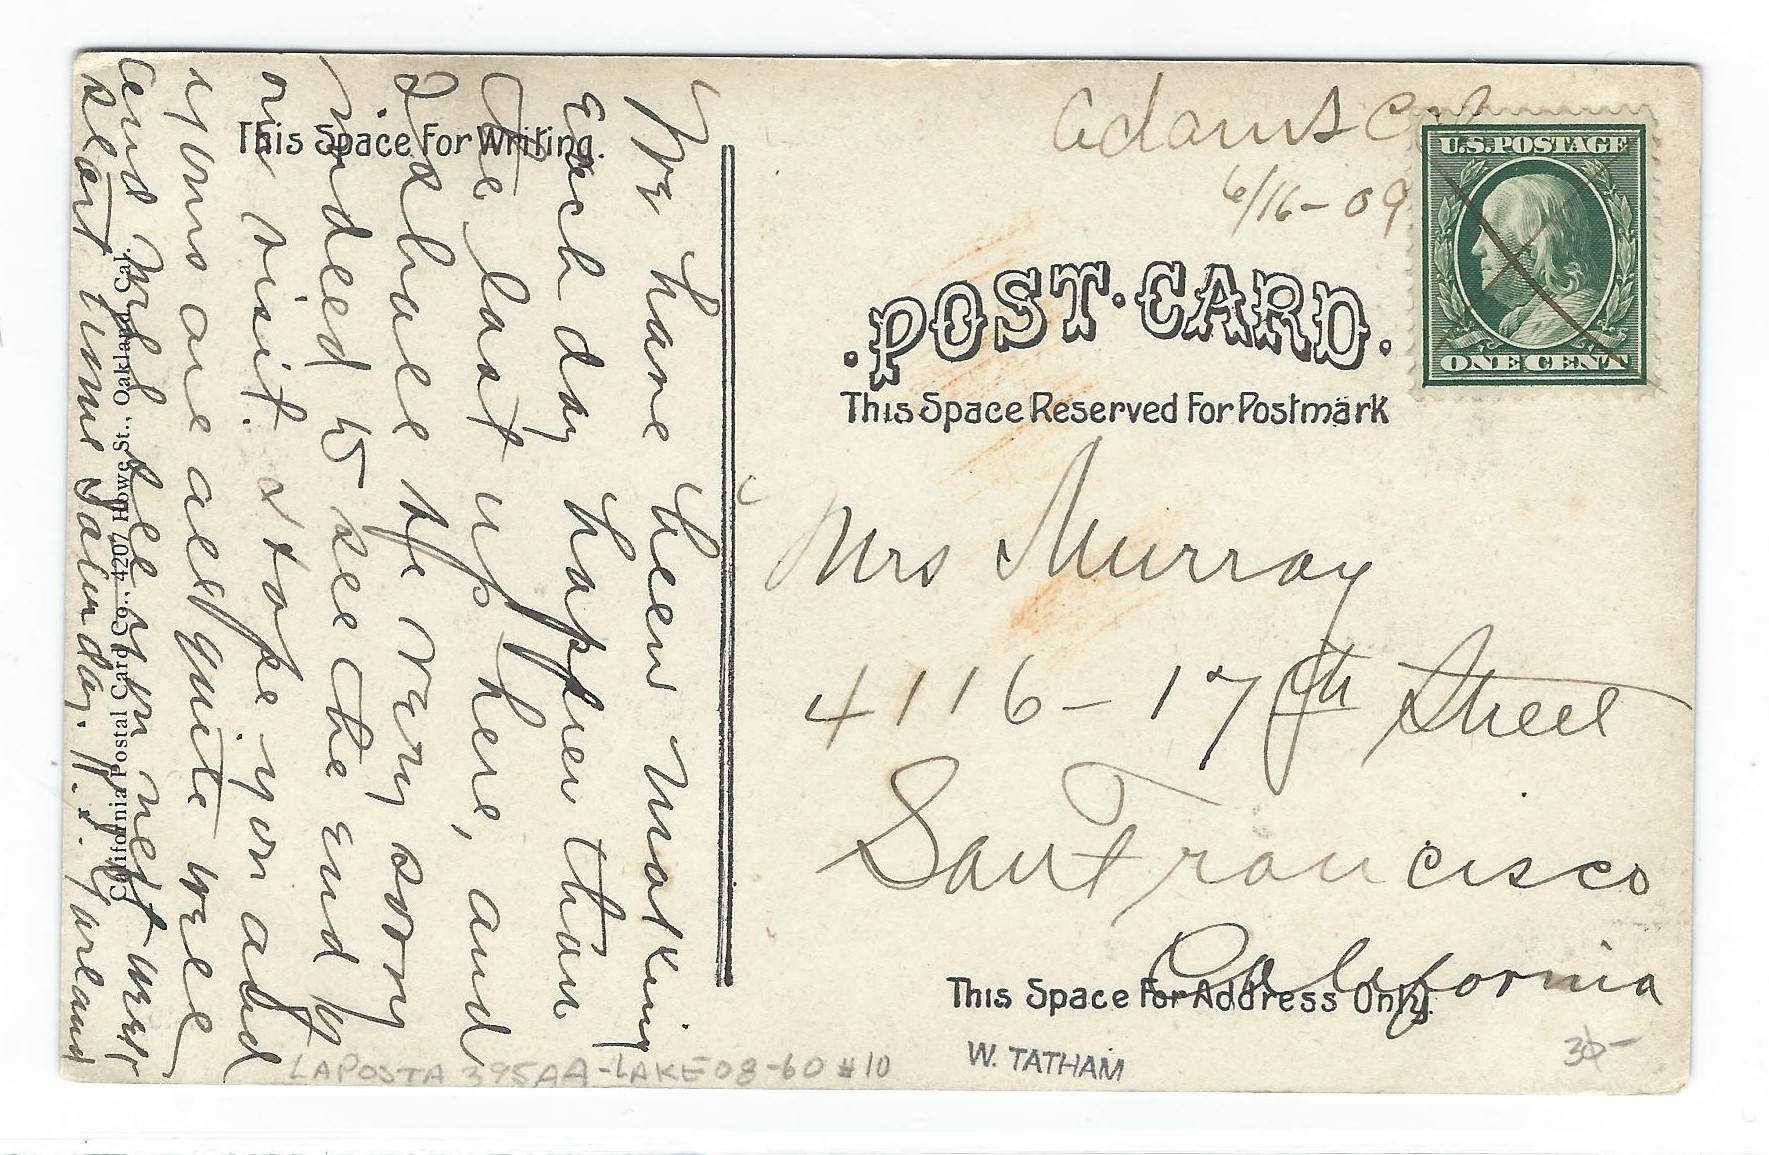 Adams Cal
6/16-09
U.S. POSTAGE
ONE CENT
POST·CARD.
This Space Reserved For Postmark
Mrs Murray
4116-17th Street
San Francisco
California
This Space For Address Only.
W. TATHAM
LAPOSTA 395AA-LAKE 08-60 #10
This Space For Writing.
We have been making
each day happier than
the last up here, and
I shall be very sorry
indeed to see the end of
our visit. I hope you and
yours are all quite well
and will see you next week
California Postal Card Co., 4207 Howe St., Oakland, Cal.
start home Saturday. H. S.